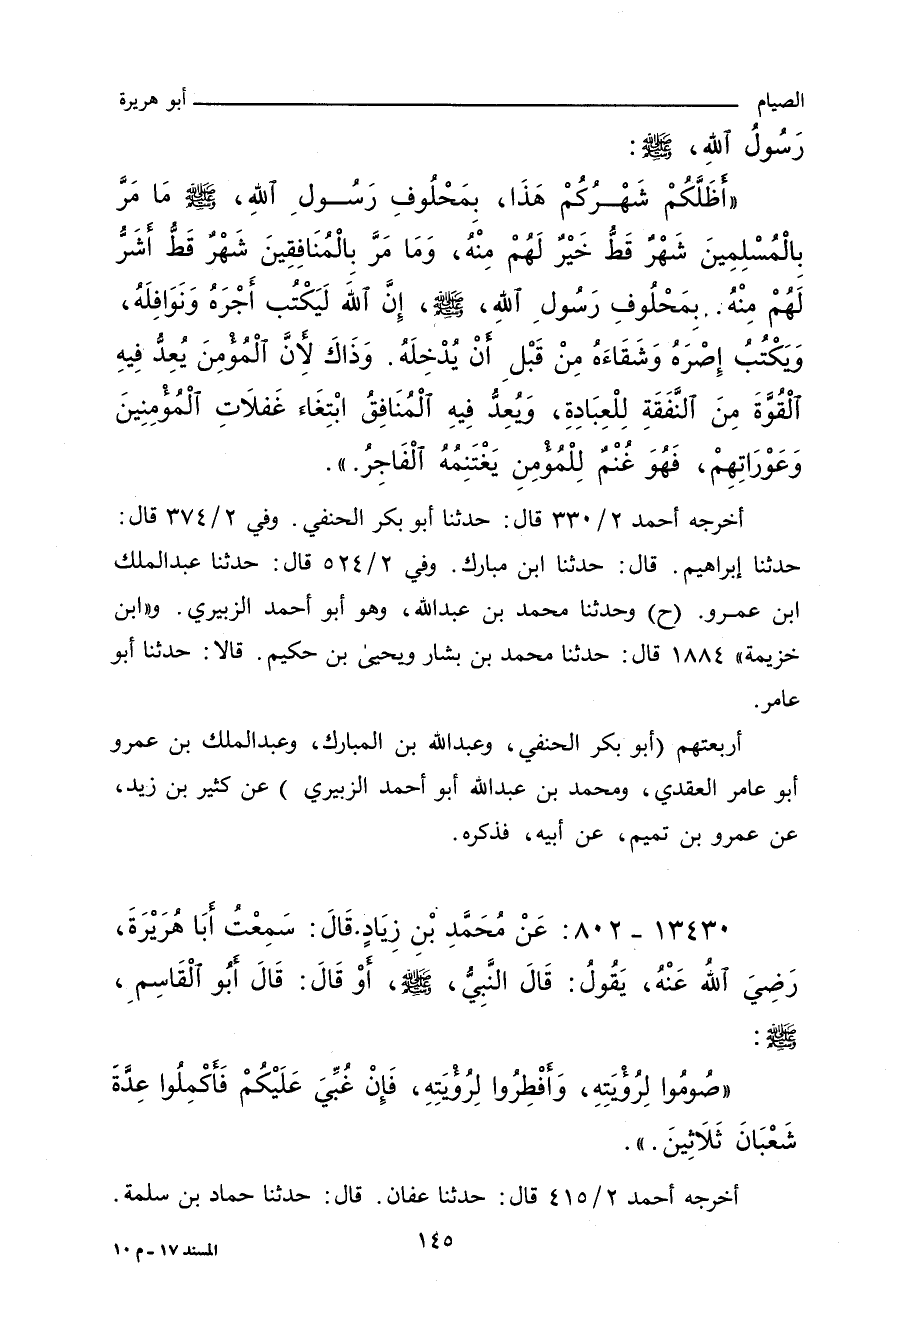 الصيام ــــــــــ أبو هريرة
رَسُولُ ٱللهِ، ﷺ:
«أَظَلَّكُمْ شَهْـرُكُمْ هَذَا، بِمَحْلُوفِ رَسُـولِ ٱللهِ، ﷺ مَا مَرَّ
بِالْمُسْلِمِينَ شَهْرٌ قَطُّ خَيْرٌ لَهُمْ مِنْهُ، وَمَا مَرَّ بِالْمُنَافِقِينَ شَهْرٌ قَطُّ أَشَرُّ
لَهُمْ مِنْهُ. بِمَحْلُوفِ رَسُولِ ٱللهِ، ﷺ، إِنَّ ٱللهَ لَيَكْتُب أَجْرَهُ وَنَوَافِلَهُ،
وَيَكْتُبُ إِصْرَهُ وَشَقَاءَهُ مِنْ قَبْلِ أَنْ يُدْخِلَهُ. وَذَاكَ لِأَنَّ ٱلْمُؤْمِنَ يُعِدُّ فِيهِ
ٱلْقُوَّةَ مِنَ ٱلنَّفَقَةِ لِلْعِبَادِةِ، وَيُعِدُّ فِيهِ ٱلْمُنَافِقُ ابْتِغَاءَ غَفَلَاتِ ٱلْمُؤْمِنِينَ
وَعَوْرَاتِهِمْ، فَهُوَ غُنْمٌ لِلْمُؤْمِنِ يَغْتَنِمُهُ ٱلْفَاجِرُ.».
أخرجه أحمد ٢/ ٣٣٠ قال: حدثنا أبو بكر الحنفي. وفي ٢/ ٣٧٤ قال:
حدثنا إبراهيم. قال: حدثنا ابن مبارك. وفي ٢/ ٥٢٤ قال: حدثنا عبدالملك
ابن عمـرو. (ح) وحدثنا محمد بن عبدالله، وهو أبو أحمد الزبيري. و«ابن
خزيمة» ١٨٨٤ قال: حدثنا محمد بن بشار ويحيىٰ بن حكيم. قالا: حدثنا أبو
عامر.
أربعتهم (أبو بكر الحنفي، وعبدالله بن المبارك، وعبدالملك بن عمرو
أبو عامر العقدي، ومحمد بن عبدالله أبو أحمد الزبيري ) عن كثير بن زيد،
عن عمرو بن تميم، عن أبيه، فذكره.
١٣٤٣٠ - ٨٠٢: عَنْ مُحَمَّدِ بْنِ زِيَادٍ.قَالَ: سَمِعْتُ أَبَا هُرَيْرَةَ،
رَضِيَ ٱللهُ عَنْهُ، يَقُولُ: قَالَ النَّبِيُّ، ﷺ، أَوْ قَالَ: قَالَ أَبُو ٱلْقَاسِمِ،
ﷺ:
«صُومُوا لِرُؤْيَتِهِ، وَأَفْطِرُوا لِرُؤْيَتِهِ، فَإِنْ غُبِّيَ عَلَيْكُمْ فَأَكْمِلُوا عِدَّةَ
شَعْبَانَ ثَلَاثِينَ.».
أخرجه أحمد ٢/ ٤١٥ قال: حدثنا عفان. قال: حدثنا حماد بن سلمة.
١٤٥
المسند ١٧ - م ١٠